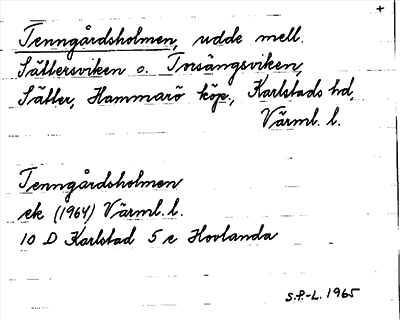 +
Tenngårdsholmen, udde mell.
Sättersviken o. Torsängsviken,
Sätter, Hammarö köp., Karlstads hd,
Värml. l.
Tenngårdsholmen
ek (1964) Värml. l.
10 D Karlstad 5 c Hovlanda
S.P.-L. 1965